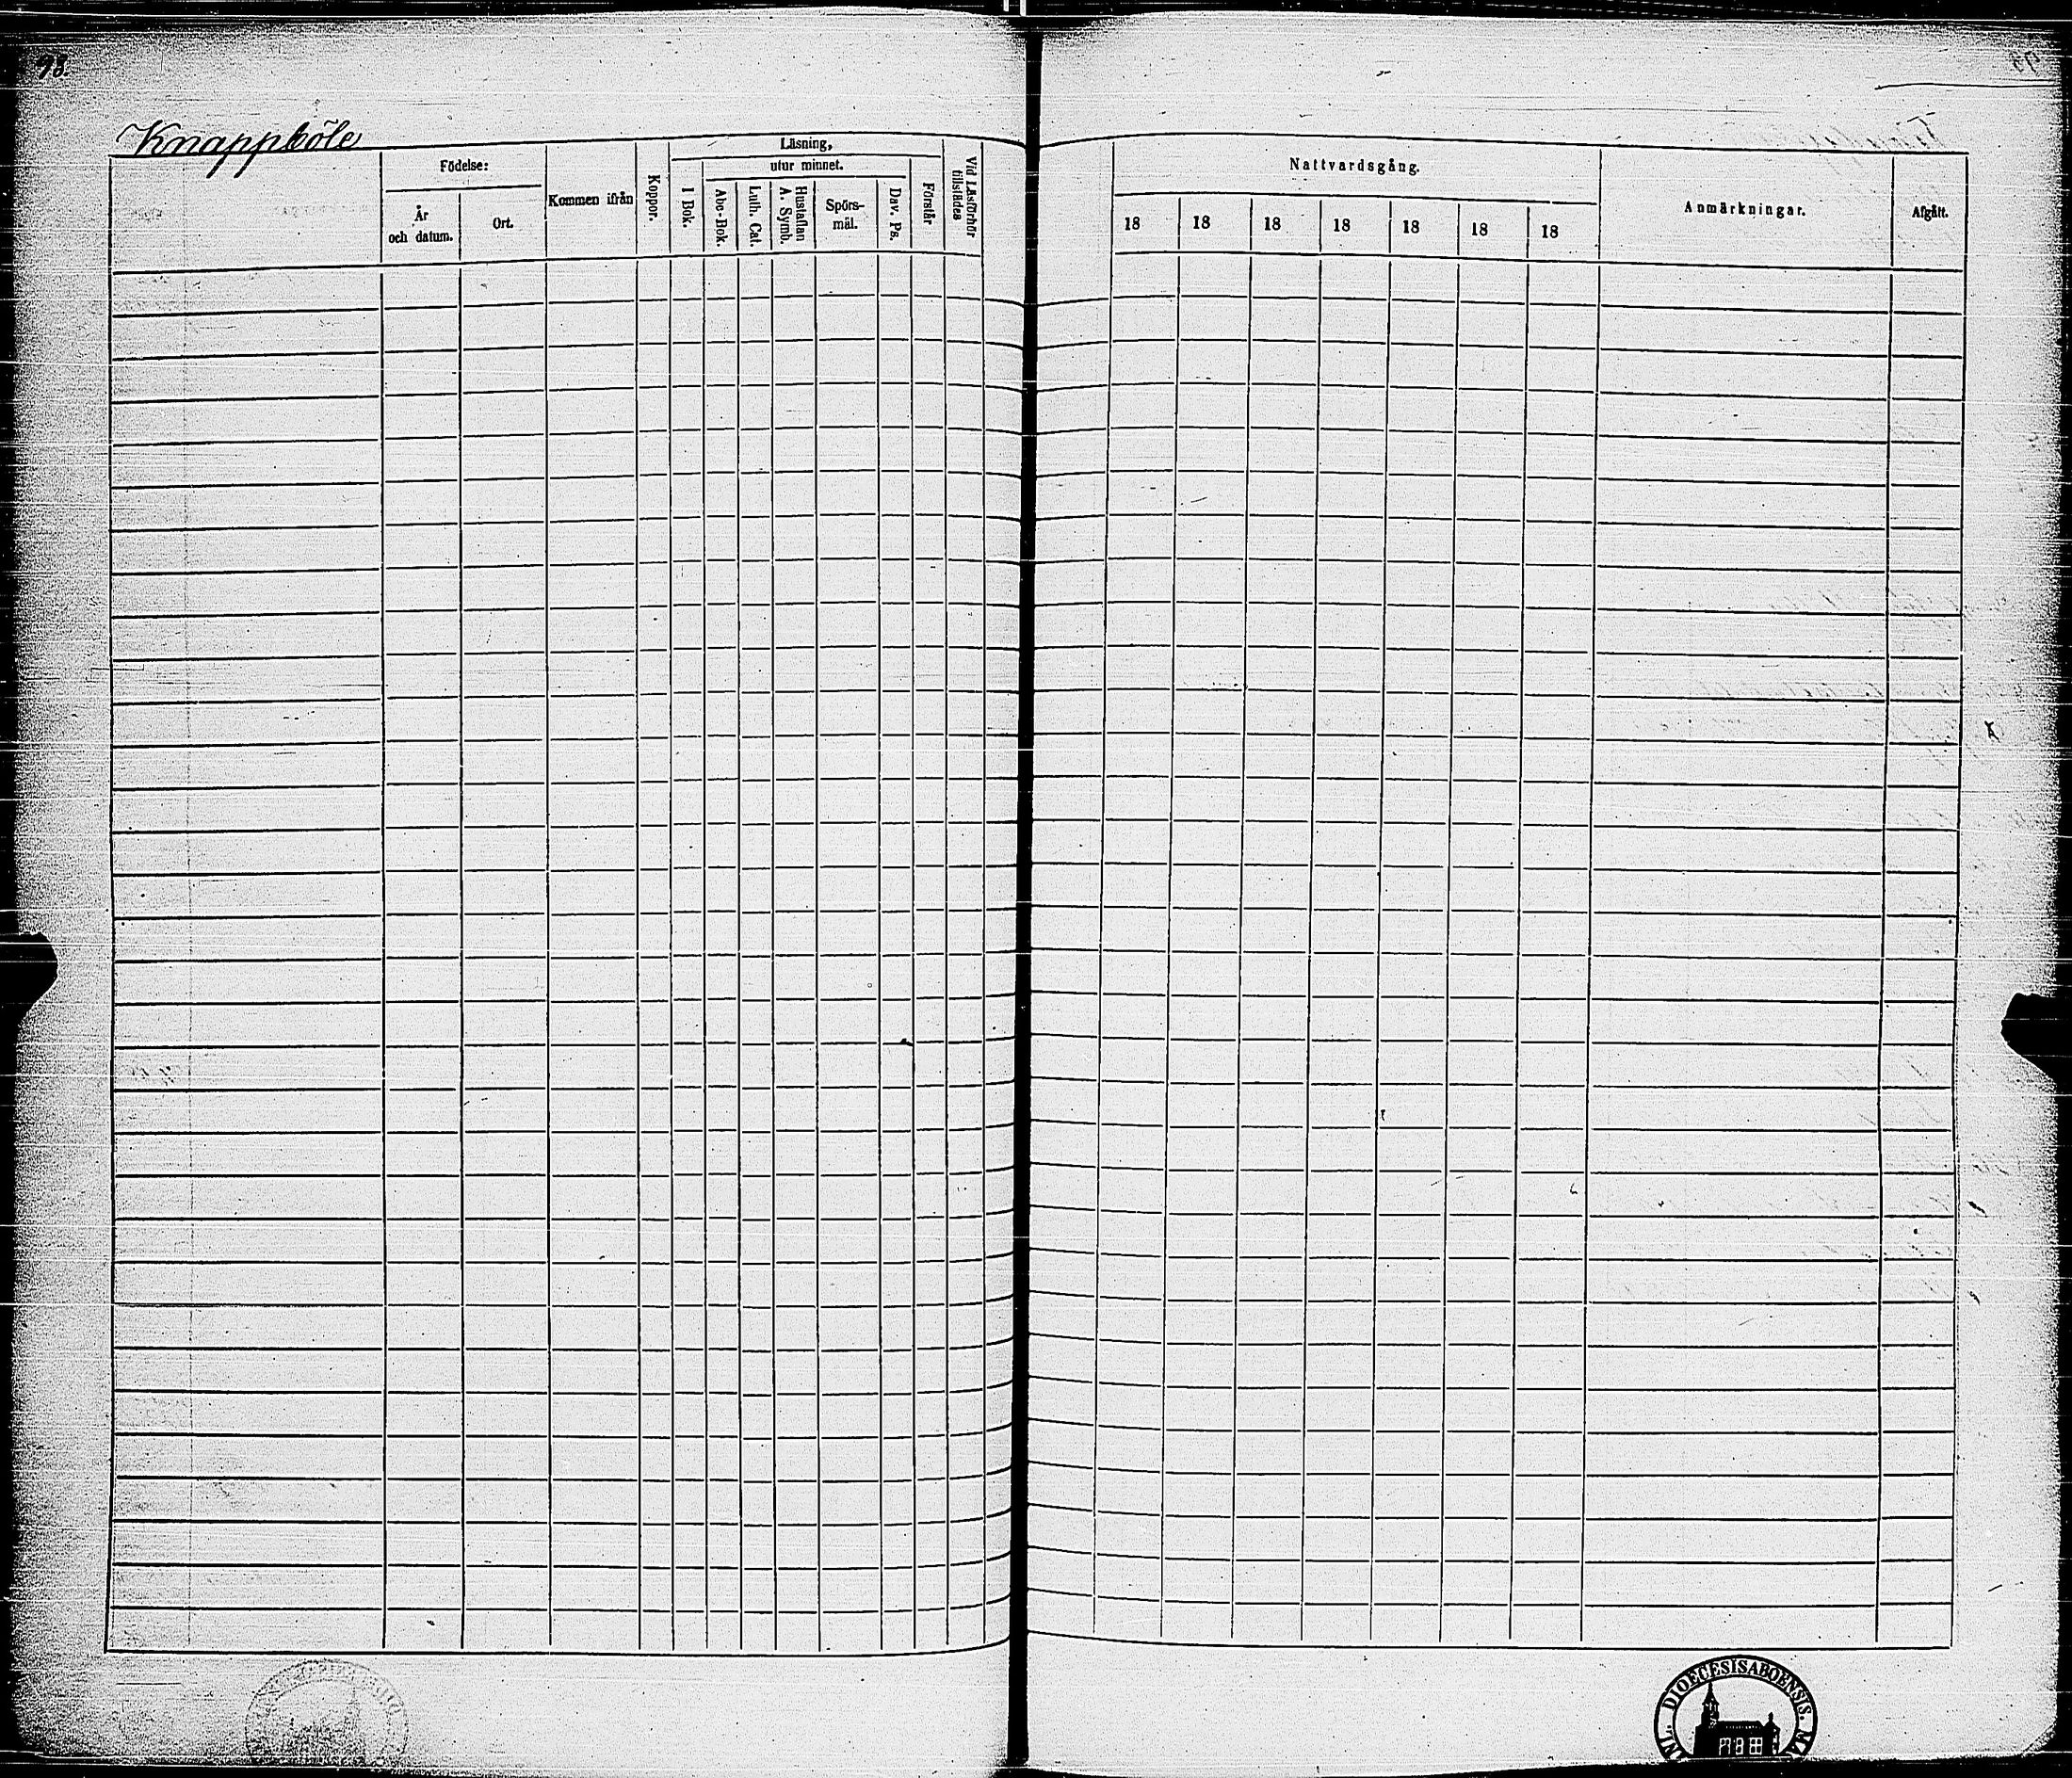 98.
Knappböle
Födelse:
År och datum.
Ort.
Kommen ifrån
Koppor.
Läsning,
I Bok.
utur minnet.
Abc-Bok.
Luth. Cat.
Hustaflan A. Symb.
Spörs-mål.
Dav. Ps.
Förstår
Vid Läsförhör tillstädes
Nattvardsgång.
18 18 18 18 18 18 18
Anmärkningar.
Afgått.
DIOECESIS ABOENSIS.